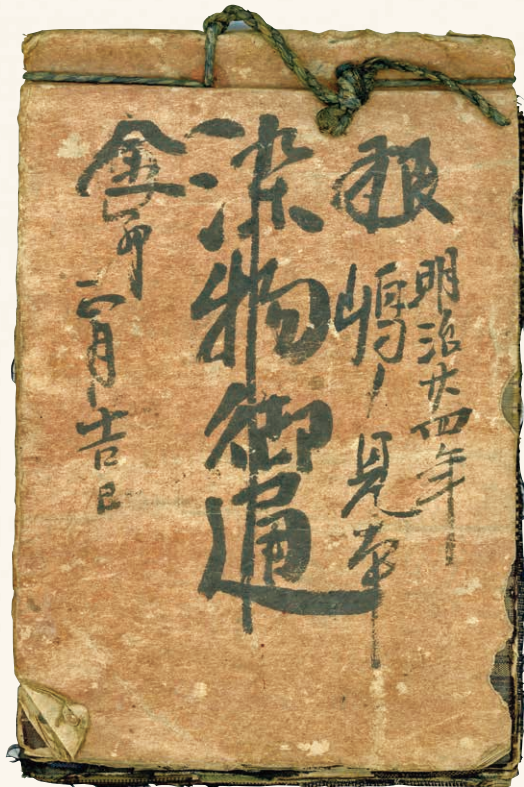 明治廿四年
嶋ノ見本
染物御通
卯
月吉日